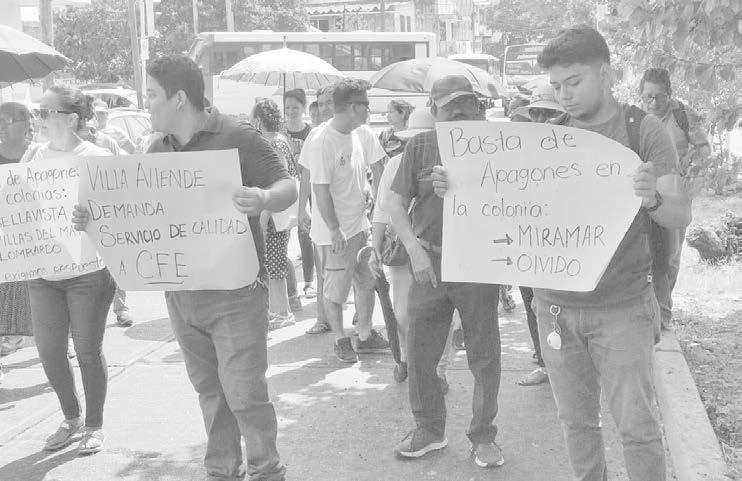 de Apagones
colonias:
BELLAVISTA
VILLAS DEL MA
LOMBARDO
exigimos respues
VILLA ALLENDE
DEMANDA
SERVICIO DE CALIDAD
A CFE
Basta de
Apagones en
la colonia:
→ MIRAMAR
→ OLVIDO